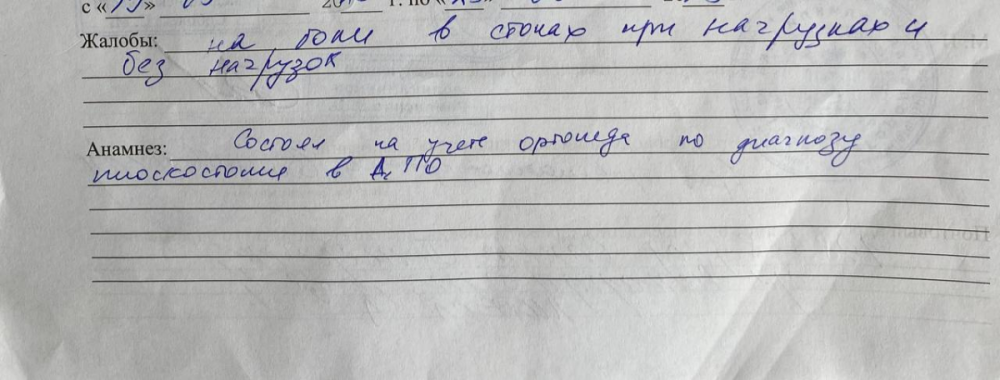 с « » 20 г. по « »
Жалобы: на боли в стопах при нагрузках и
без нагрузок
Анамнез: Состоял на учете ортопеда по диагнозу
плоскостопия в ДПО